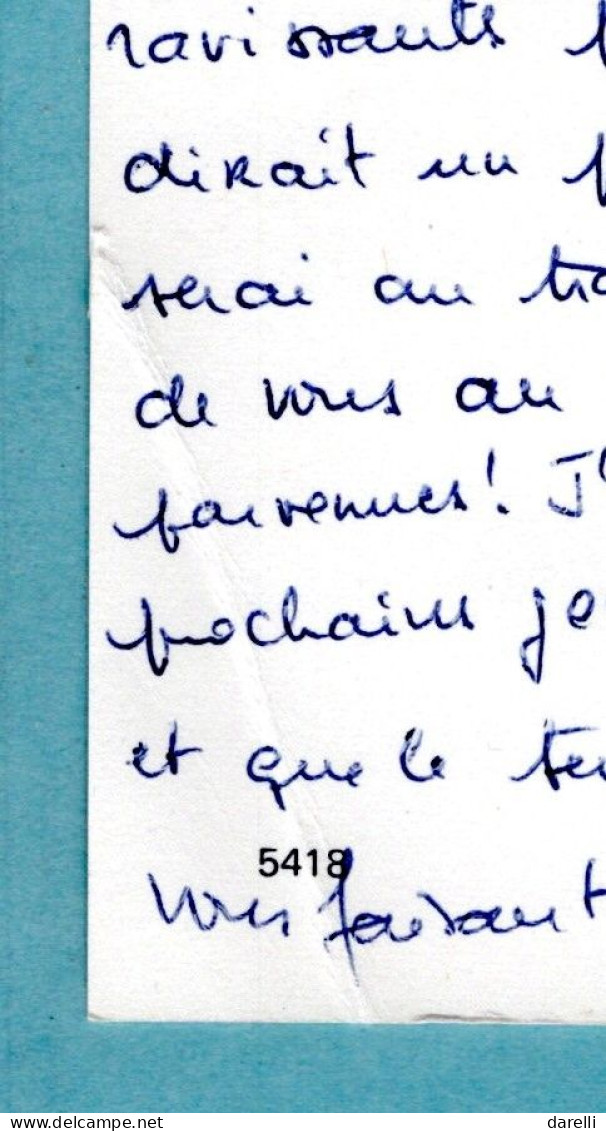 ravissants
dirait un
serai au
de vous au
parvenues! J'
prochains je
et que le
5418
vous faisant
delcampe.net
darelli